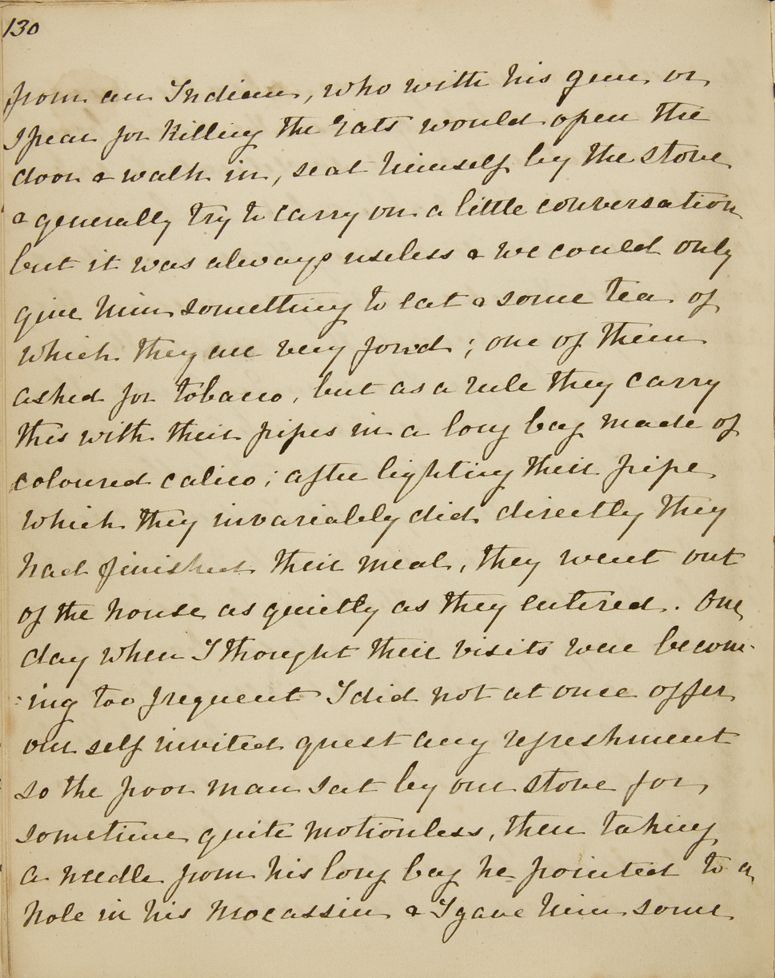 130
from an Indian, who with his gun or
spear for killing the rats would open the
door & walk in, seat himself by the stove
& generally try to carry on a little conversation
but it was always useless & we could only
give him something to eat & some tea of
which they are very fond; one of them
asked for tobacco, but as a rule they carry
this with their pipes in a long bag made of
coloured calico; after lighting their pipe
which they invariably did directly they
had finished their meal, they went out
of the house as quietly as they entered. One
day when I thought their visits were becom-
:ing too frequent I did not at once offer
our self invited guest any refreshment
so the poor man sat by our stove for
sometime quite motionless, then taking
a needle from his long bag he pointed to a
hole in his mocassin & I gave him some